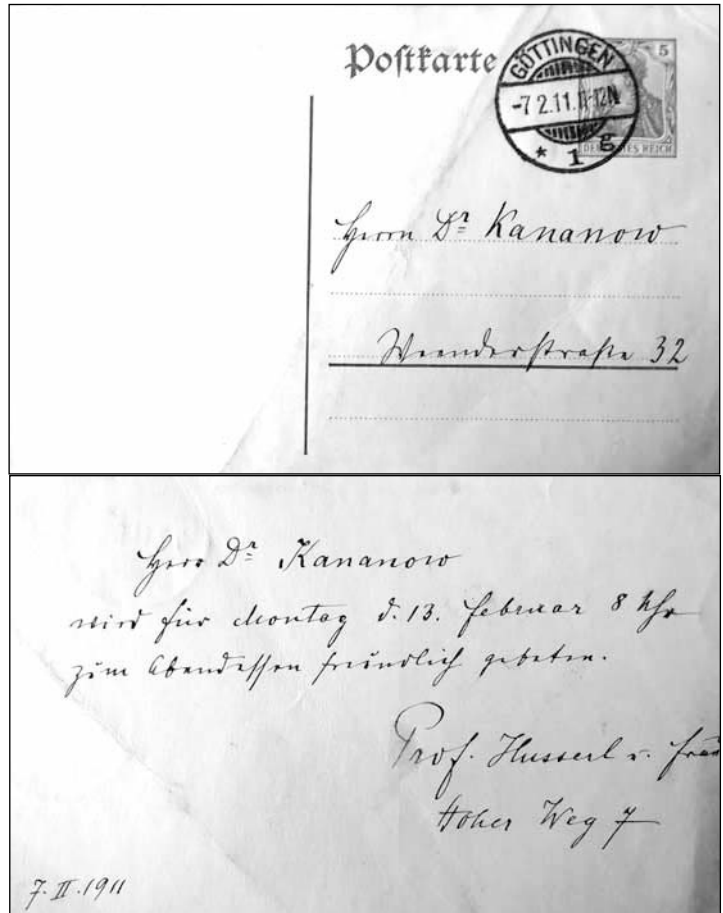 Postkarte
GÖTTINGEN
-7 2.11.11-12N
* 1 g
5
DEUTSCHES REICH
Herrn Dr Kananow
Weenderstraße 32
Herr Dr Kananow
wird für Montag d. 13. Februar 8 Uhr
zum Abendessen freundlich gebeten.
Prof. Husserl u. Frau
Hoher Weg 7
7. II. 1911